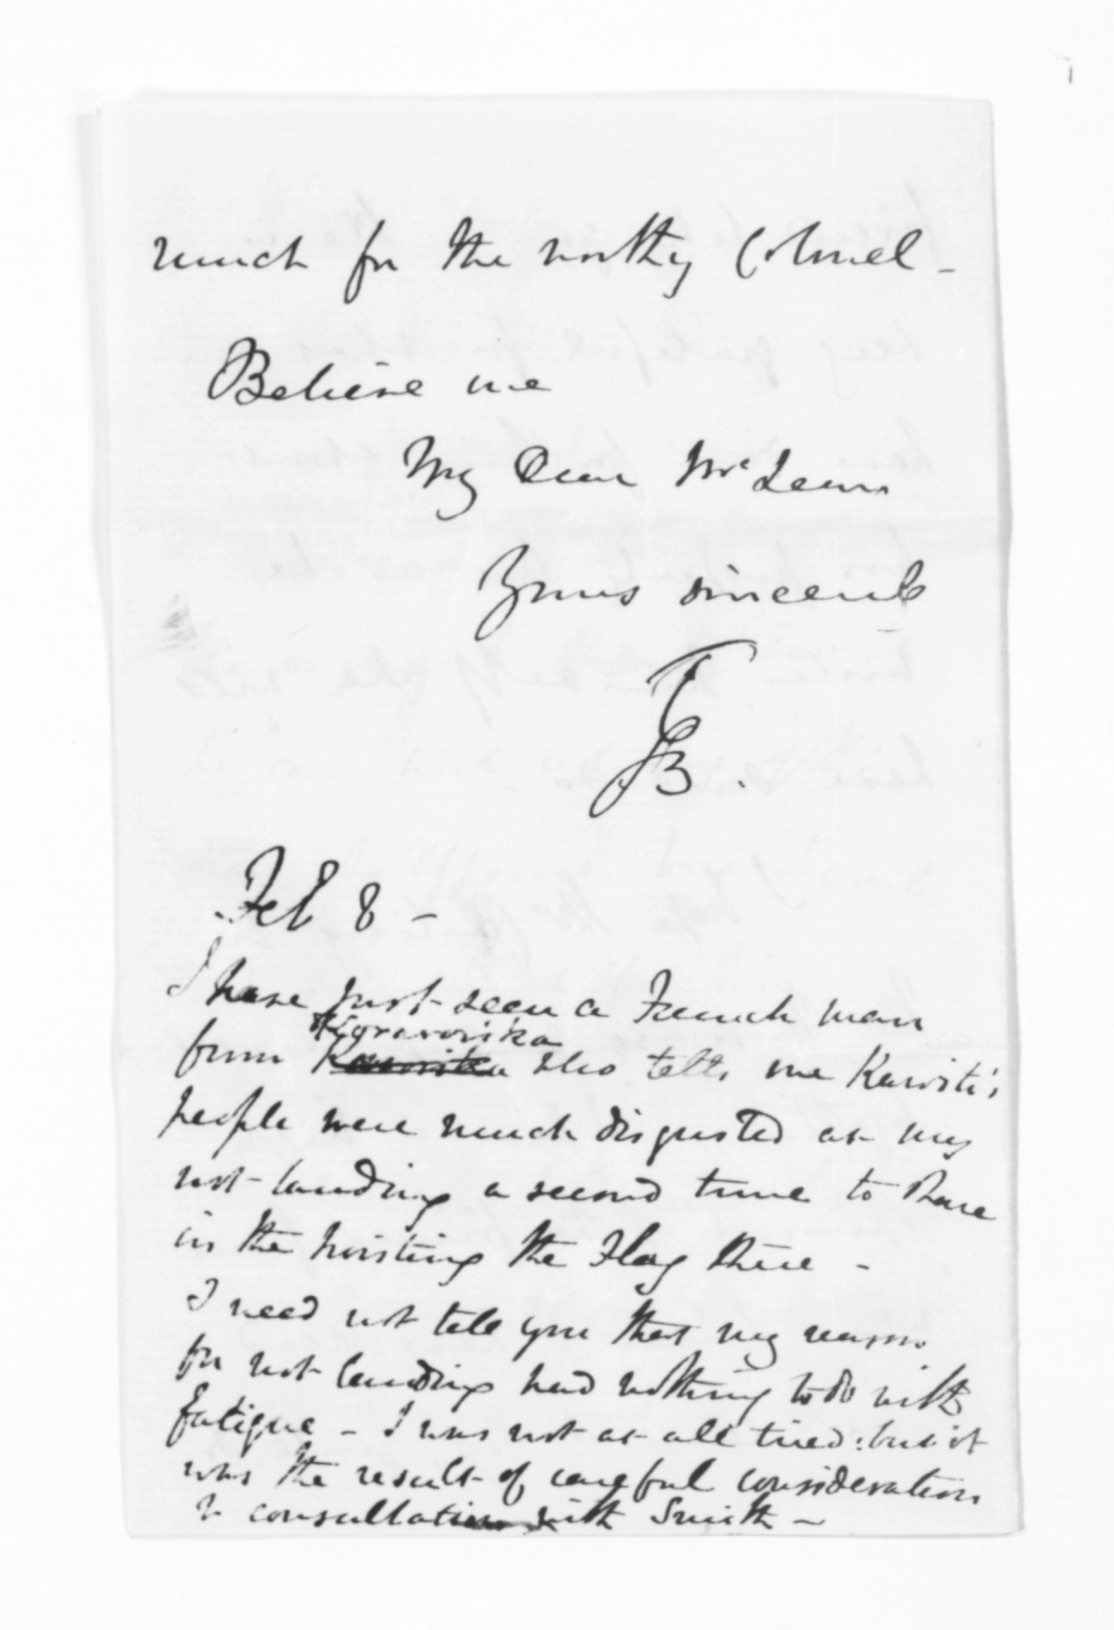 much for the worthy Colonel -
Believe me
My Dear McLean
Yours sincerely
Feb 8 -
I have just seen a French man
Kororarika
from who tells me Kawiti's
people were much disgusted at my
not landing a second time to share
in the hoisting the Flag there -
I need not tell you that my reasons
for not landing had nothing to do with
fatigue - I was not at all tired: but it
was the result of careful consideration
& consultation with Smith -